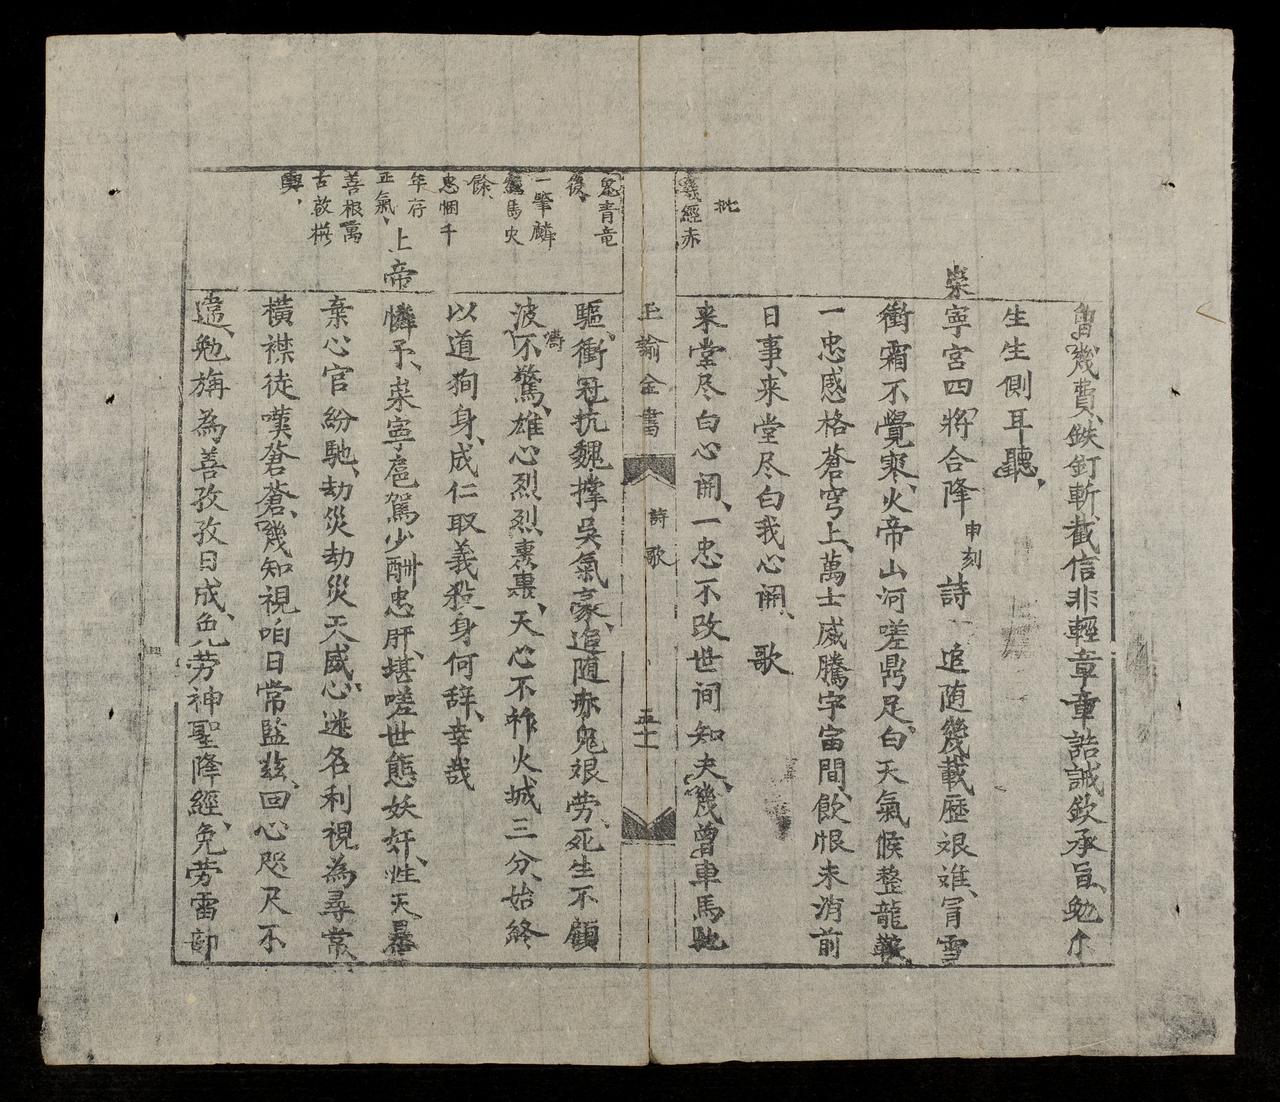 魯幾費、鉄釘斬截信非輕章章誥誡欽承旨、勉尒
生生側耳聽、
崇寧宮四將合降 申刻 詩 追随幾載歷艰难、冐雪
衝霜不覺寒、火帝山河嗟鼎足、白天氣候整龍鞍、
一忠感格蒼穹上、萬士威騰宇宙間、飲恨未消前
日事、来堂尽白我心闹、 歌
来堂尽白心闹、一忠不改世间知、夫幾曾車馬馳
批
義經赤
上諭金書 詩歌 五十一
兔青竜
後、
一肇麟
馬史
餘、
忠悃千
年存
正氣、
善根萬
古啟
輿、
驅、衝冠抗魏撑吳氣豪、追随赤兔艰劳、死生不顧
波濤不驚、雄心烈烈裏裏、天心不祚火城三分、始終
以道狥身、成仁取義殺身何辞、幸哉
上帝憐予、崇寧扈駕少酬忠肝、堪嗟世態妖奸、性天暴
棄心官紛馳、劫災劫災天威、心迷名利視為尋常
橫襟徒嘆蒼蒼、幾知視咱日常監茲、回心咫尺不
遠、勉旃為善孜孜日成、免劳神聖降經、免劳雷部